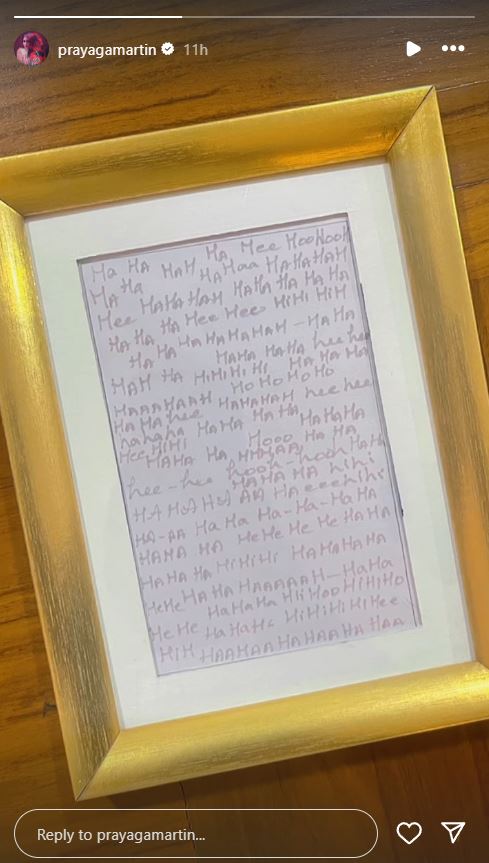 prayagamartin 11h
Ha HA HAH HA Hee HooHooH
HA Ha HaHaa HAHAHAH
Hee HAHAHAH HAHA HA HA HA
HA HA HA Hee Hee HiHi HiH
HA HA HAHAHAHAH - HA HA
HAHA HAHA hee hee
HAH HA HiHiHiHi HA HA HA
HO HO HO HO
HAAAHAAH HAHAHAH hee hee
HA HA hee
hahaha HAHA HA HA HAHAHA
Hee HiHi Hooo HA HA
HAHA HA HHHAA
hee-hee hooh-hooh HAHA
HAHA HA hihi
HA HAHHA AA HA eeehihi
HA-AA HaHa Ha-Ha-HaHA
HAHA HA HeHe He He HAHA
HAHA HA HiHiHi HAHAHAHA
HeHe HAHA HAAAAAH-HaHa
HaHaHa HHiHoo HiHiHo
HeHe HaHaHa HiHiHiHiHee
HiH HAAHAAHAHAAHAHAA
Reply to prayagamartin...